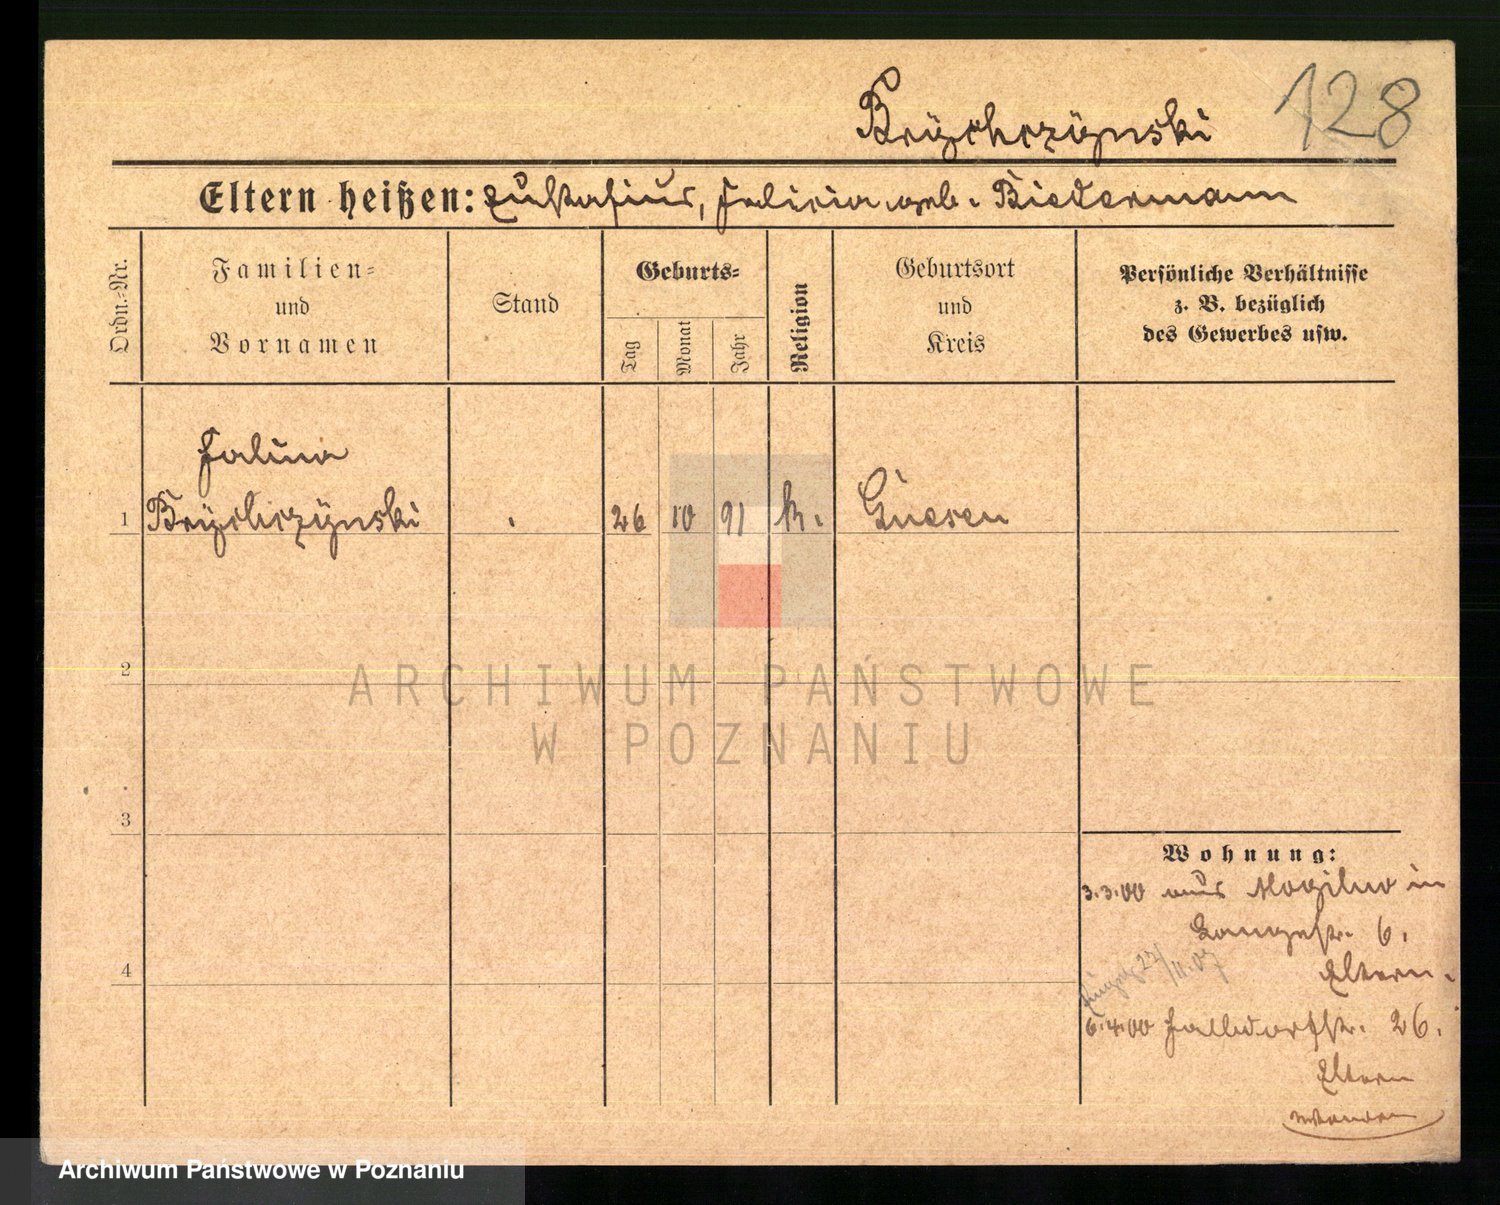 Brzychczynski
128
Eltern heißen: Eustasius, Felicia geb. Biedermann
Ordn.-Nr.
Familien-
und
Vornamen
Stand
Geburts-
Tag
Monat
Jahr
Religion
Geburtsort
und
Kreis
Persönliche Verhältnisse
z. B. bezüglich
des Gewerbes usw.
Halina
1 Brzychczynski 26 10 91 k. Gnesen
2
3
4
Wohnung:
3.3.00 aus Mogilno in
Langestr. 6.
Eltern.
27/11.07
6.4.00 Halldorfstr. 26.
Eltern
wenden
ARCHIWUM PAŃSTWOWE
W POZNANIU
Archiwum Państwowe w Poznaniu